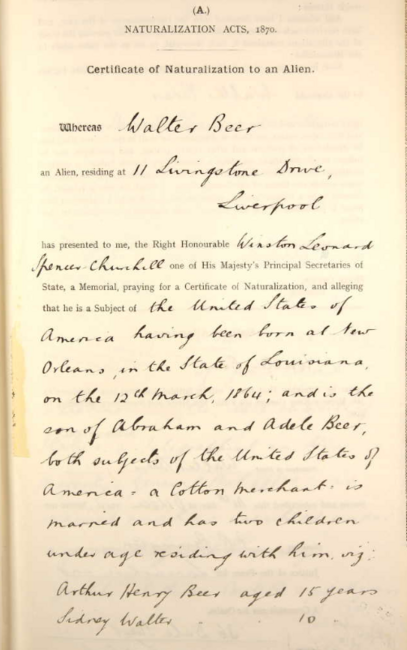 (A.)
NATURALIZATION ACTS, 1870.
Certificate of Naturalization to an Alien.
Whereas Walter Beer
an Alien, residing at 11 Livingstone Drive,
Liverpool
has presented to me, the Right Honourable Winston Leonard
Spencer-Churchill one of His Majesty's Principal Secretaries of
State, a Memorial, praying for a Certificate of Naturalization, and alleging
that he is a Subject of the United States of
America having been born at New
Orleans, in the State of Louisiana,
on the 12th March, 1864; and is the
son of Abraham and Adele Beer,
both subjects of the United States of
America - a Cotton Merchant - is
married and has two children
under age residing with him, viz:
Arthur Henry Beer aged 15 years
Sidney Walter " 10 "